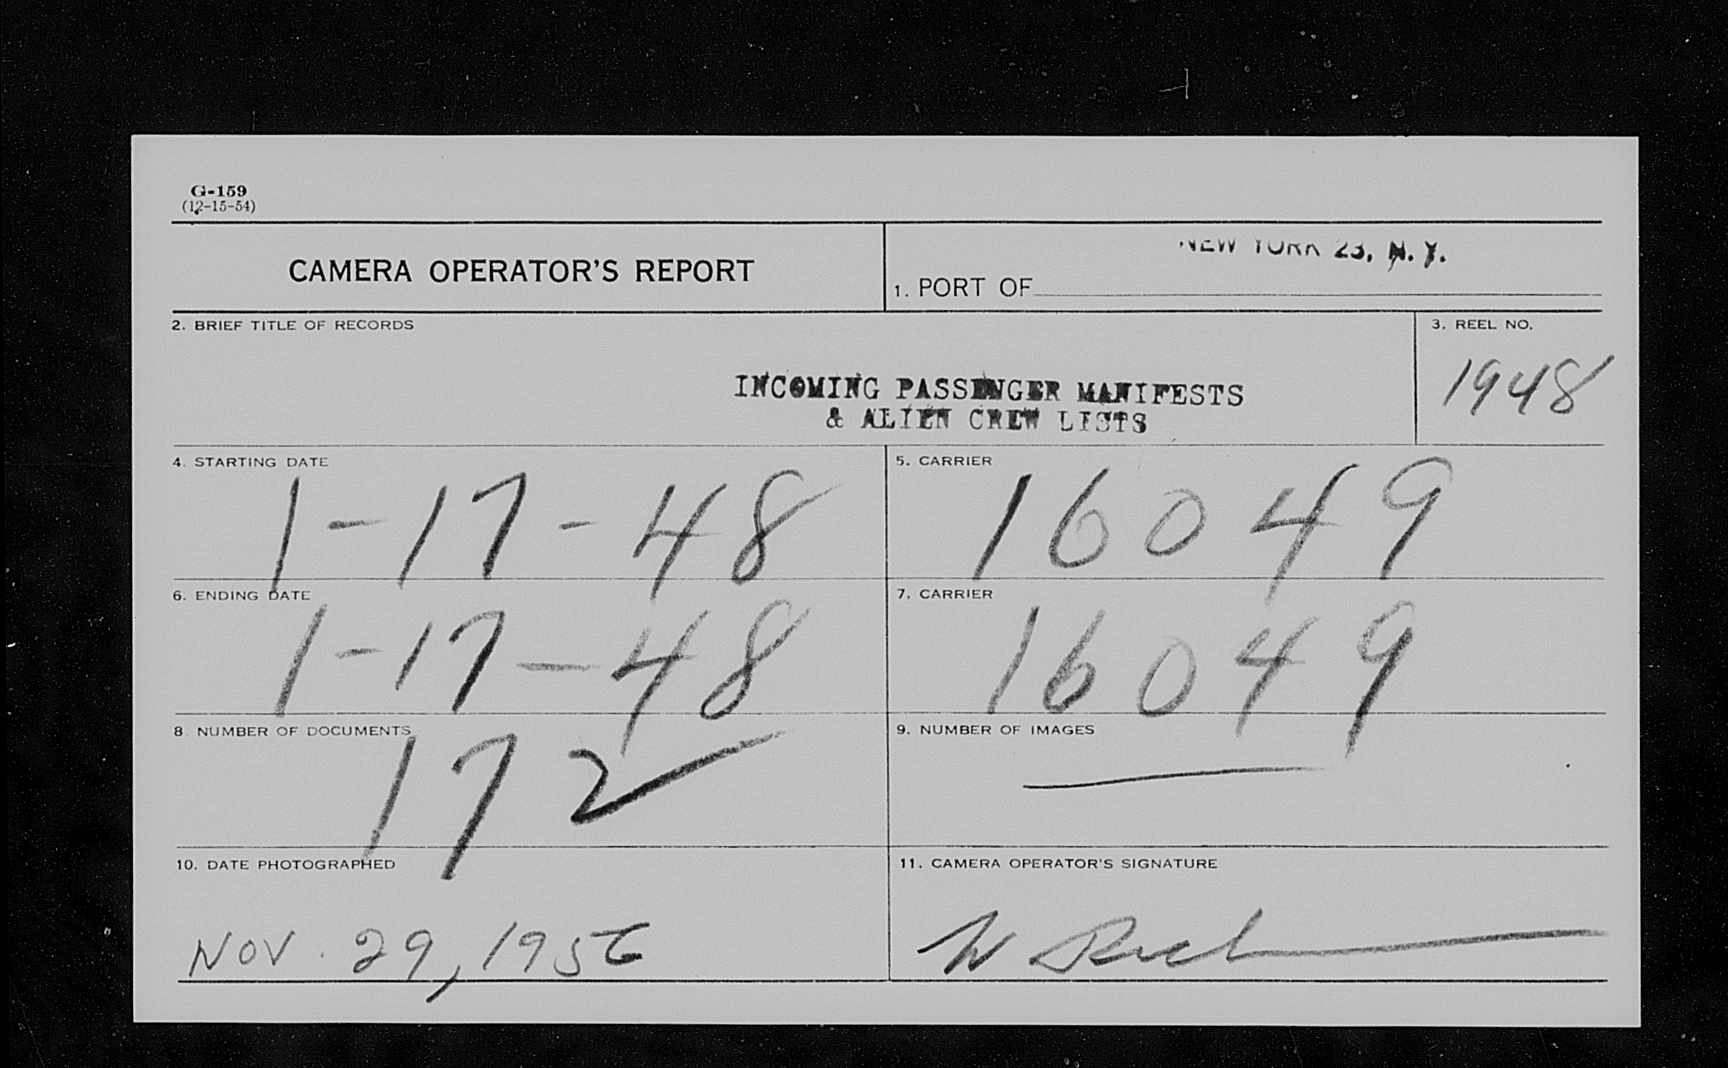 G-159
(12-15-54)
CAMERA OPERATOR'S REPORT
NEW YORK 23, N. Y.
1. PORT OF
2. BRIEF TITLE OF RECORDS
3. REEL NO.
INCOMING PASSENGER MANIFESTS
& ALIEN CREW LISTS
1948
4. STARTING DATE
5. CARRIER
1-17-48
16049
6. ENDING DATE
7. CARRIER
1-17-48
16049
8. NUMBER OF DOCUMENTS
9. NUMBER OF IMAGES
172
10. DATE PHOTOGRAPHED
11. CAMERA OPERATOR'S SIGNATURE
NOV. 29, 1956
W